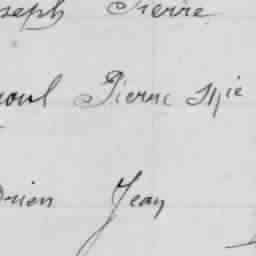 seph Pierre
aoul Pierre Mie
drien Jean